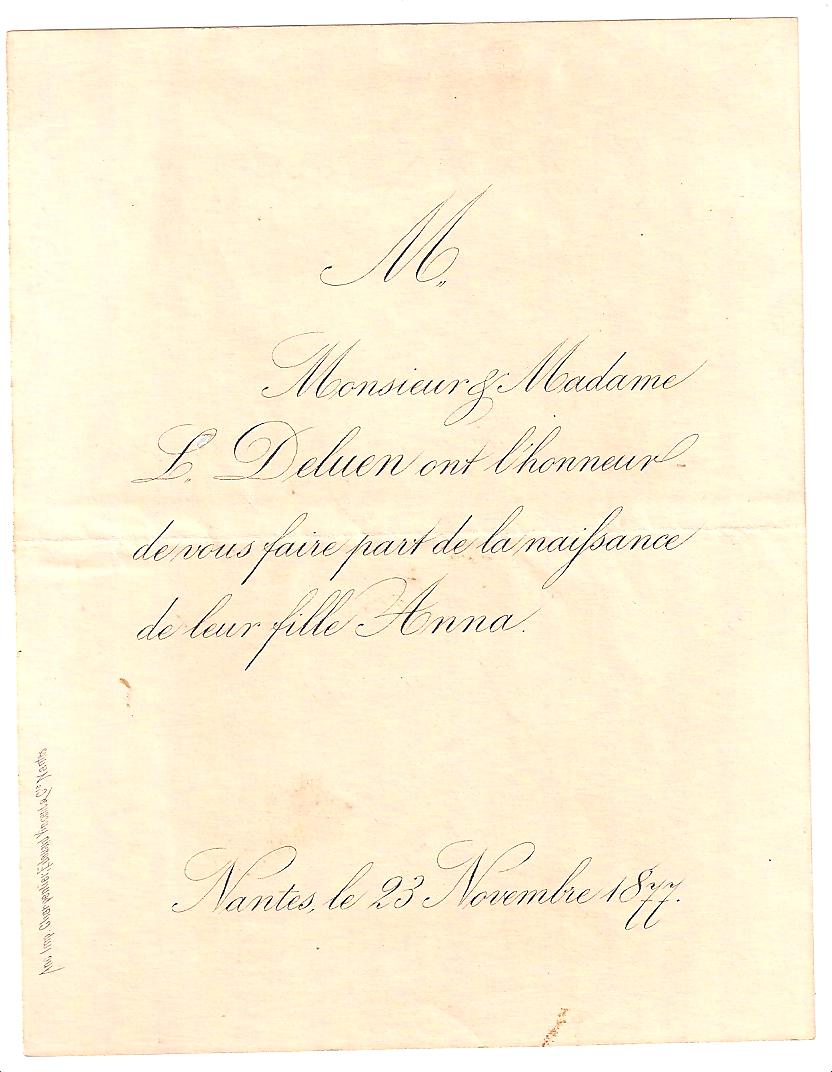 M,,
Monsieur & Madame
L. Deluen ont l'honneur
de vous faire part de la naiſsance
de leur fille Anna.
Nantes, le 23 Novembre 1877.
Imp. Charpentier, Nantes